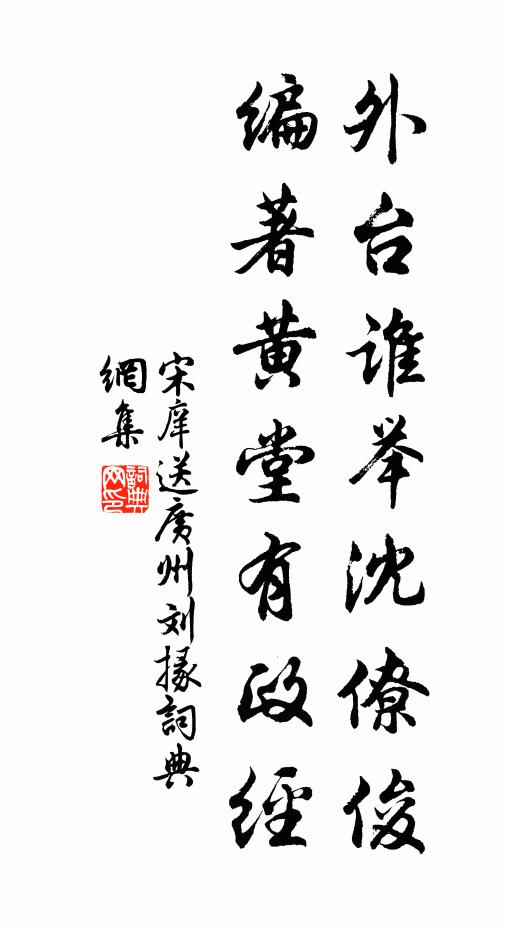 外台谁举沈僚俊
编著黄堂有政经
宋庠送廣州刘掾詞典
網集
詞典網印